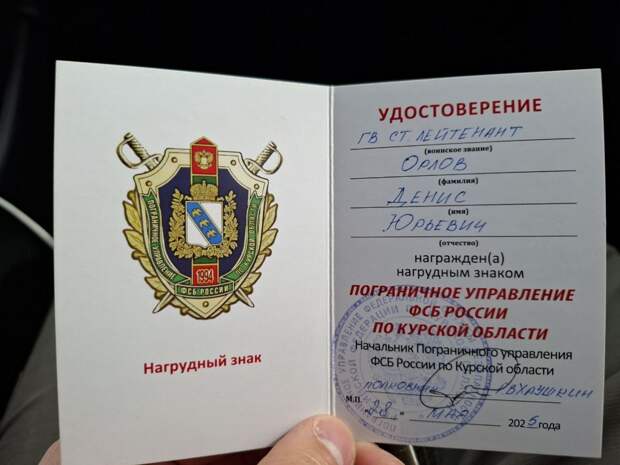 ПОГРАНИЧНОЕ УПРАВЛЕНИЕ
ПО КУРСКОЙ
1994
ФСБ РОССИИ
Нагрудный знак
УДОСТОВЕРЕНИЕ
ГВ СТ. ЛЕЙТЕНАНТ
(воинское звание)
ОРЛОВ
(фамилия)
ДЕНИС
(имя)
ЮРЬЕВИЧ
(отчество)
награжден(а)
нагрудным знаком
ПОГРАНИЧНОЕ УПРАВЛЕНИЕ
ФСБ РОССИИ
ПО КУРСКОЙ ОБЛАСТИ
Начальник Пограничного управления
ФСБ России по Курской области
полковник
М.П.
"28" МАЯ 2025 года